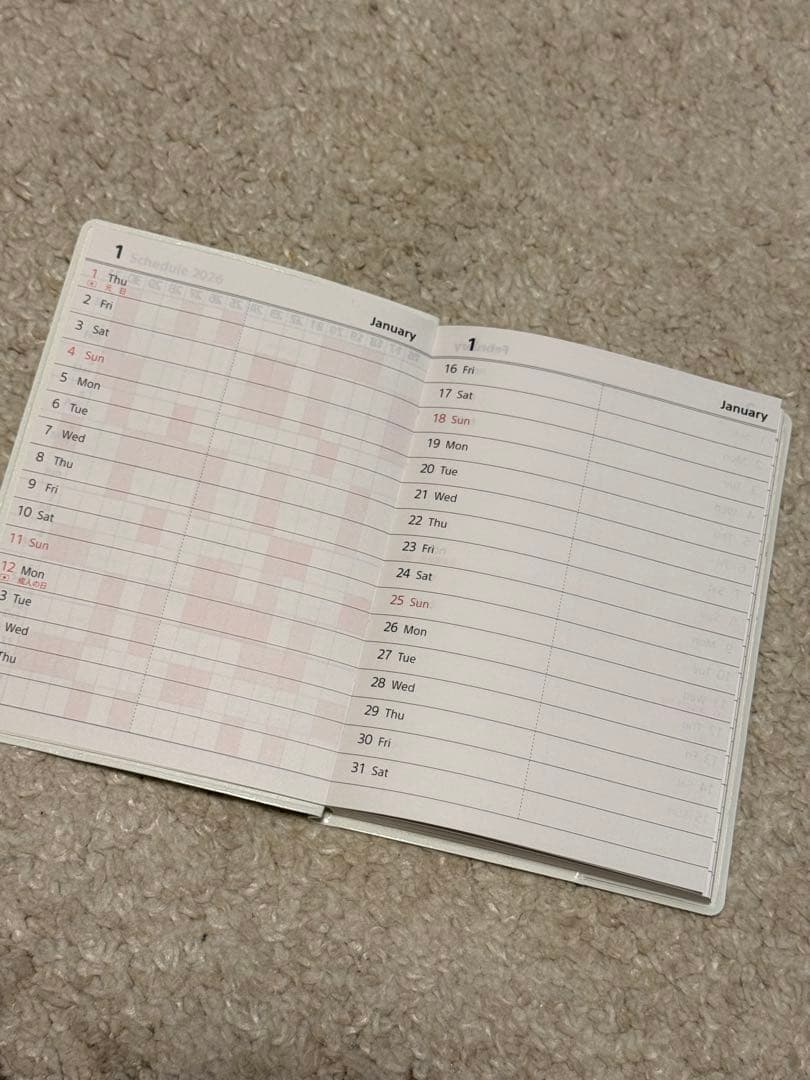 1 Schedule 2026
January
1 Thu
元日
2 Fri
3 Sat
4 Sun
5 Mon
6 Tue
7 Wed
8 Thu
9 Fri
10 Sat
11 Sun
12 Mon
成人の日
3 Tue
Wed
Thu
1
January
16 Fri
17 Sat
18 Sun
19 Mon
20 Tue
21 Wed
22 Thu
23 Fri
24 Sat
25 Sun
26 Mon
27 Tue
28 Wed
29 Thu
30 Fri
31 Sat